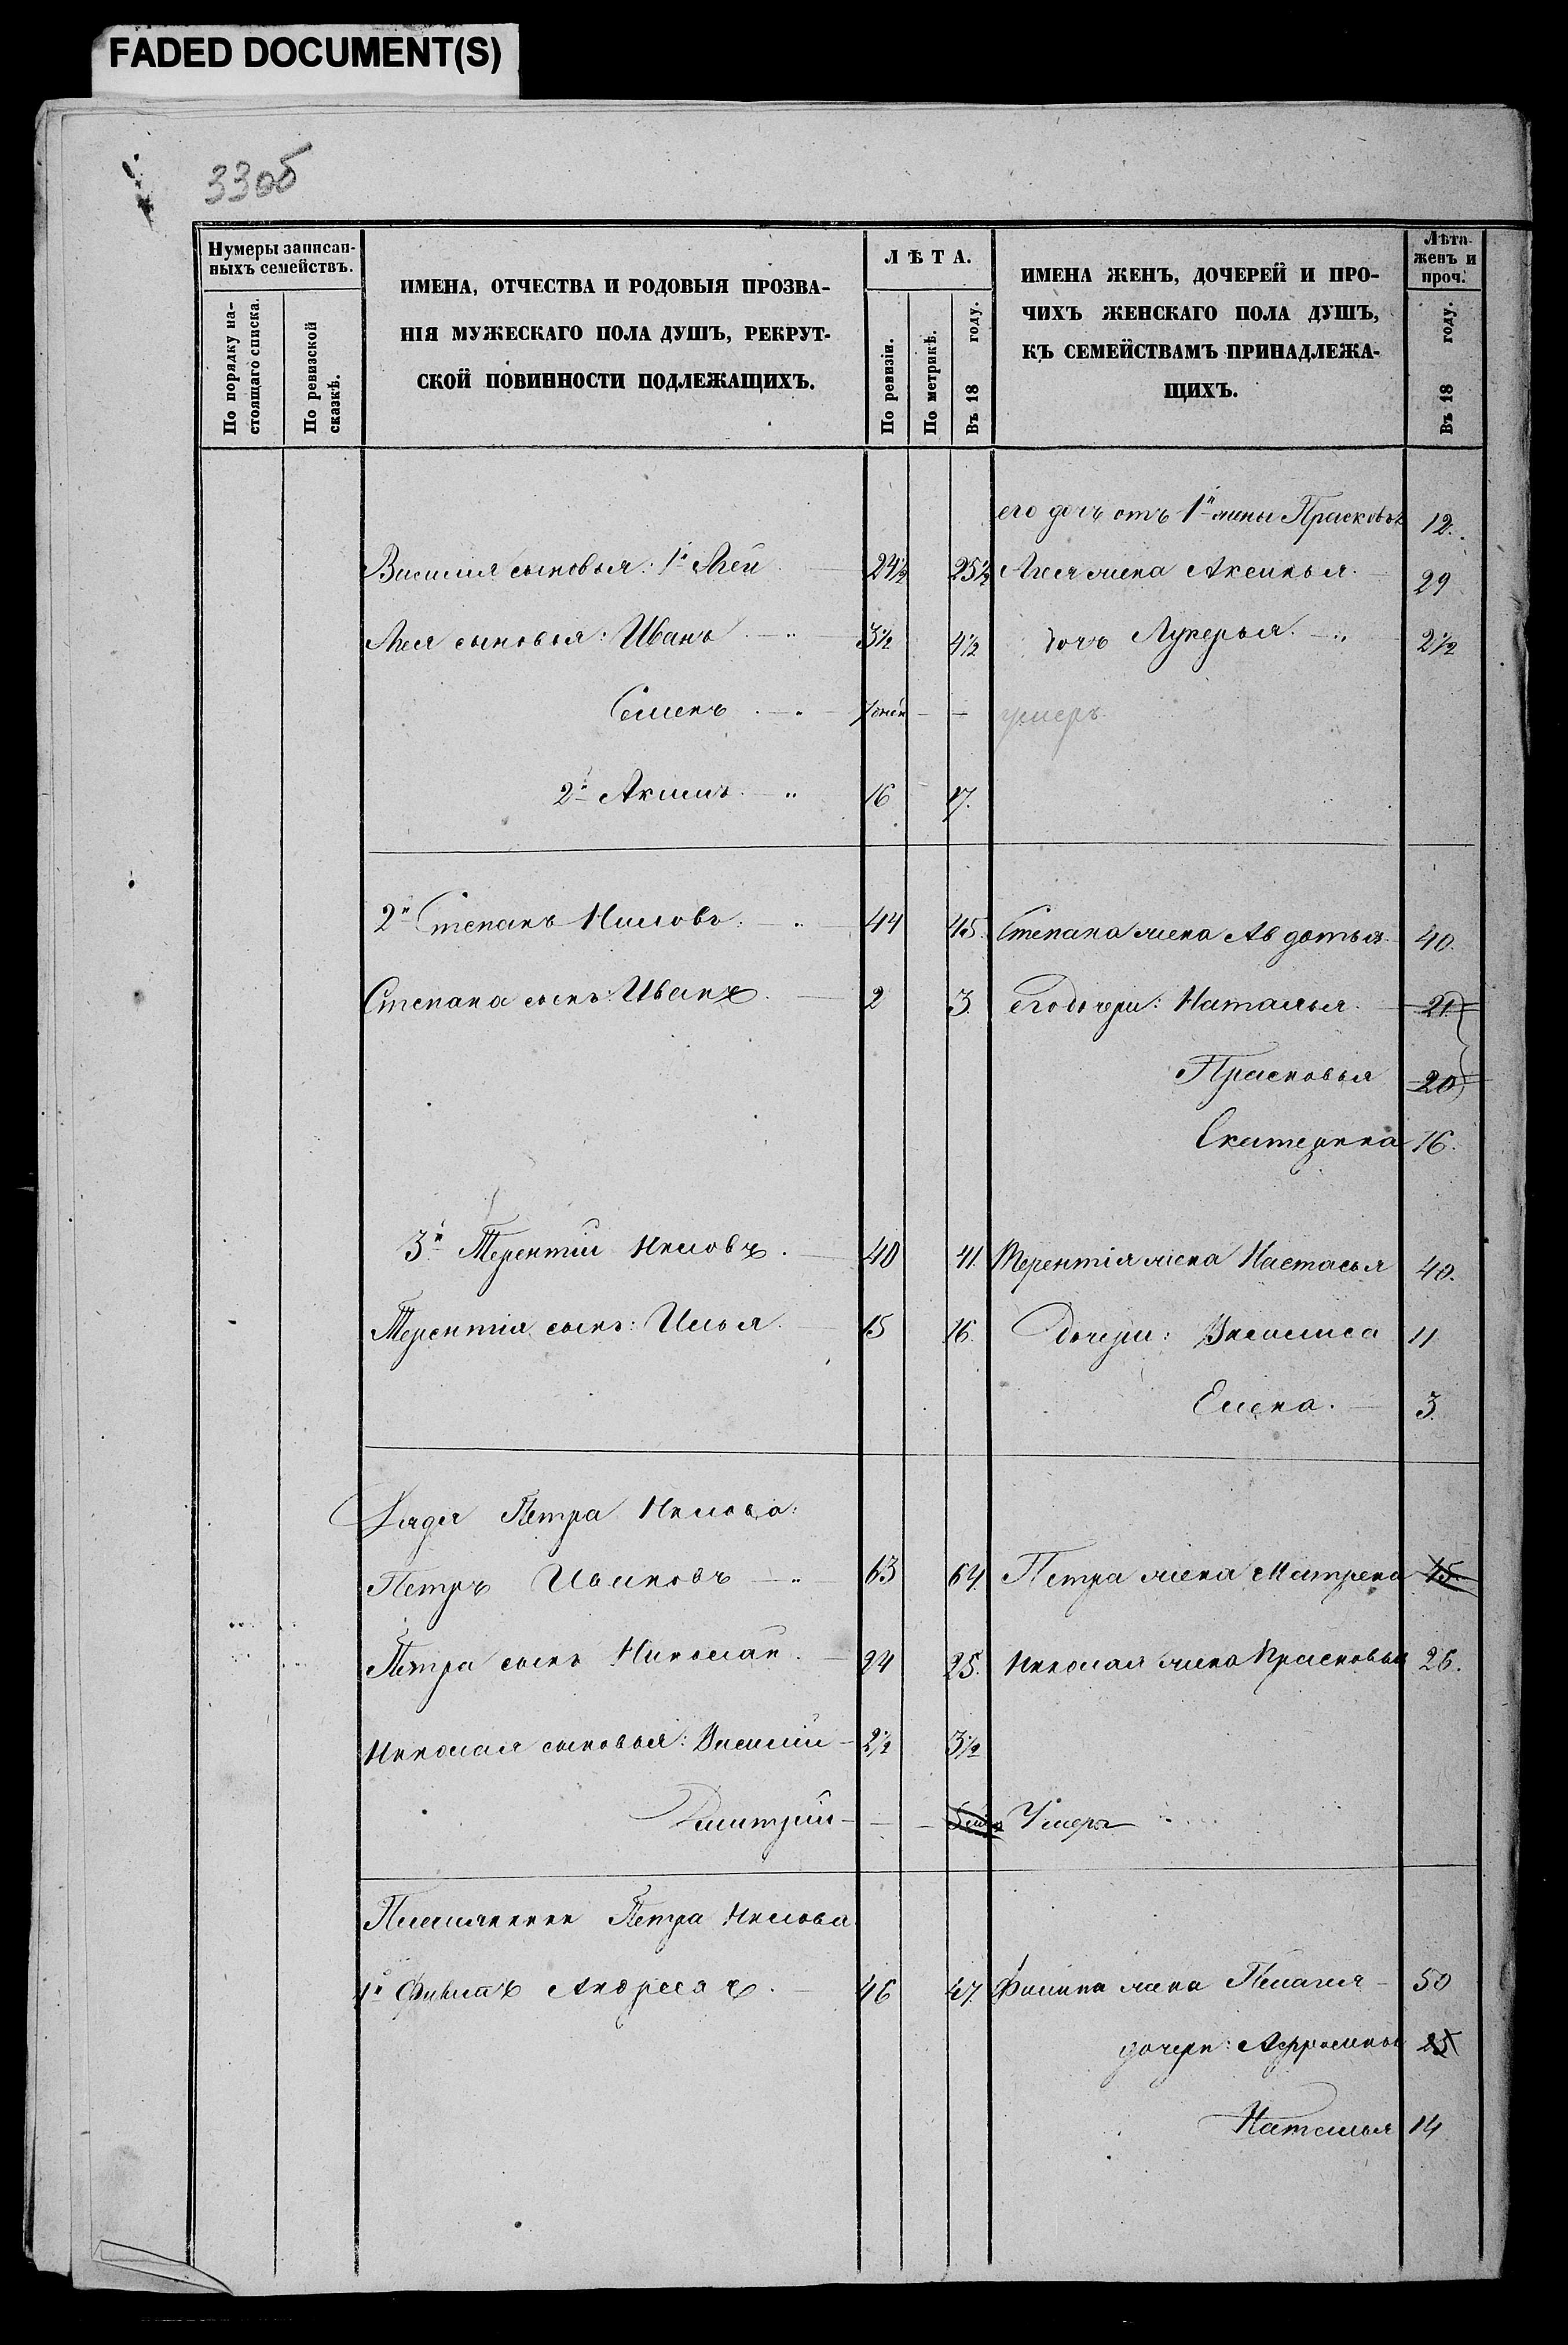 FADED DOCUMENT(S)
33об
Нумеры записан-
ныхъ семействъ.
По порядку на-
стоящаго списка.
По ревизской
сказкѣ.
ИМЕНА, ОТЧЕСТВА И РОДОВЫЯ ПРОЗВА-
НІЯ МУЖЕСКАГО ПОЛА ДУШЪ, РЕКРУТ-
СКОЙ ПОВИННОСТИ ПОДЛЕЖАЩИХЪ.
ЛѢТА.
По ревизіи.
По метрикѣ.
Въ 18 году.
ИМЕНА ЖЕНЪ, ДОЧЕРЕЙ И ПРО-
ЧИХЪ ЖЕНСКАГО ПОЛА ДУШЪ,
КЪ СЕМЕЙСТВАМЪ ПРИНАДЛЕЖА-
ЩИХЪ.
Лѣта
женъ и
проч.
Въ 18 году.
его дочь отъ 1й жены Прасковья 12.
Василія сыновья: 1й 24½ 25½ жена Аксинья 29
сыновья: Иванъ 3½ 4½ дочь Лукерья 2½
Семенъ — — умеръ
2й Акимъ 16 17.
2й Степанъ Ниловъ. 44 45. Степана жена Авдотья 40.
Степана сынъ: Иванъ. 2 3. его дочери: Наталья. 21.
Прасковья 20
Екатерина 16.
3й Терентій Ниловъ. 40 41. Терентія жена Настасья 40.
Терентія сынъ: Илья. 15 16. дочери: Василиса 11
Елена. 3.
Дядя Петра Нилова:
Петръ Ивановъ 63 64 Петра жена Матрена 45.
Петра сынъ Николай. 24 25. Николая жена Прасковья 26.
Николая сыновья: Василій 2½ 3½
Дмитрій — — Умеръ
Племянники Петра Нилова
1й Андреевъ. 46 47. Филипа жена Пелагея 50
дочери: 25
Наталья 14